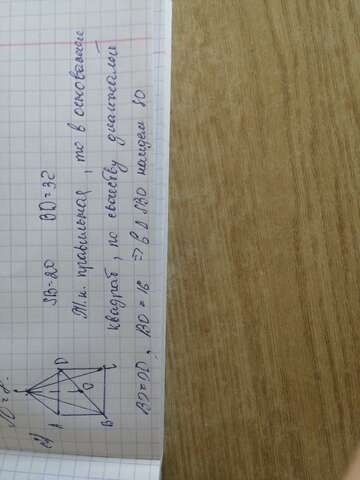 SO = ?
SB=20 BD=32
Т.к. правильная, то в основании
квадрат, по свойству диагоналей
BO=OD, BO=16 ⇒ в Δ SBO найдем SO
A D
O
B C